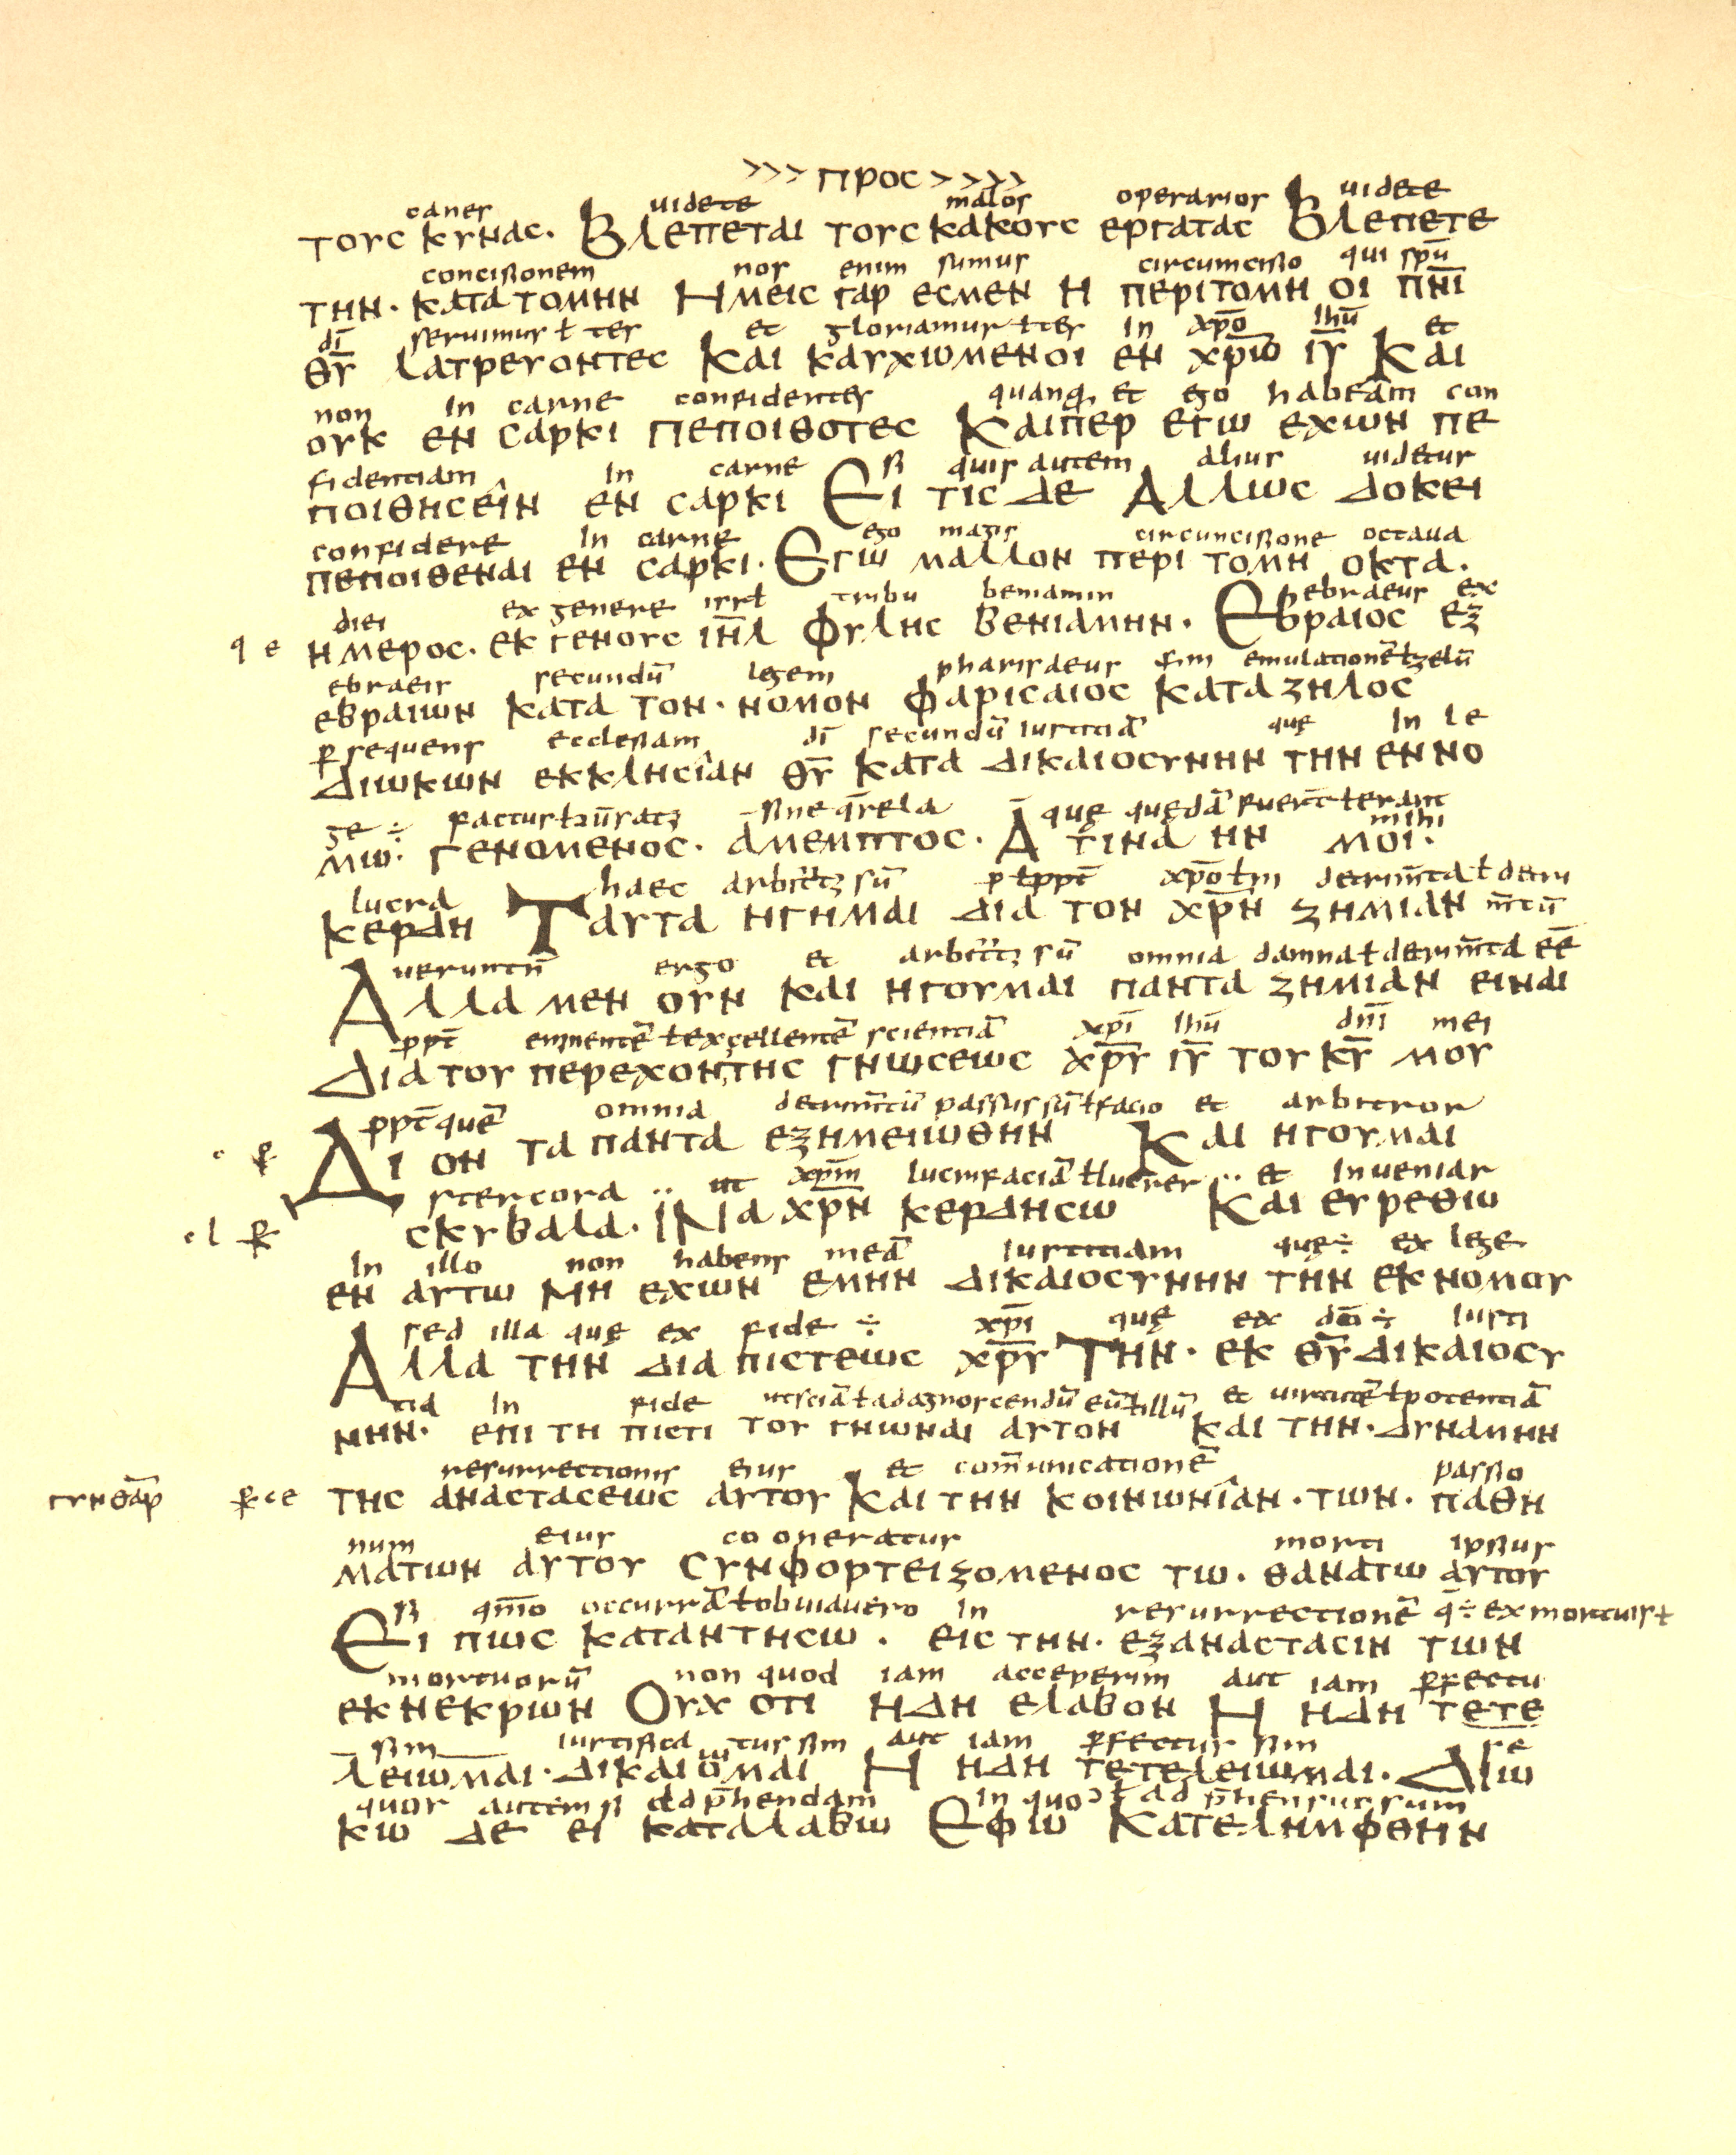 >>> προς >>>>
caner uidete malos operarior uidete
τους κυναc. Βλεπεται τους κακους εργατας Βλεπετε
concisionem nos enim sumus circumcisio qui spū
την. κατα τομην Ημεις γαρ εσμεν η περιτομη οι π̅ν̅ι̅
dī seruimur ł ter et gloriamur ł ter in xp̄o ihū et
θ̅υ̅ λατρευοντες Και καυχωμενοι εν χ̅ρ̅ω̅ ι̅υ̅ Και
non in carne confidenter quanq, et ego habeam con
ουκ εν σαρκι πεποιθοτες Καιπερ εγω εχων πε
fidentiam in carne si quis autem alius uidetur
ποιθησειν εν σαρκι Ει τις δε Αλλως δοκει
confidere in carne ego magis circuncisione octaua
πεποιθεναι εν σαρκι. Εγω μαλλον περι τομη οκτα.
diei ex genere isrł tribu beniamin hebraeus ex
q e ημερος. εκ γενους ι̅η̅λ̅ Φυλης βενιαμην. Εβραιος εξ
ebraeis secundū legem pharisaeus scm emulationē ł zelū
εβραιων κατα τον. νομον φαρισαιος κατα ζηλος
persequens ecclesiam dī secundū iustitiā que in le
διωκων εκκλησιαν θ̅υ̅ κατα δικαιοσυνην την εν νο
ge ÷ factus sine q̄rela que quedā fuerɫ erant mihi
μω. γενομενος. αμεμπτος. Α τινα ην μοι.
lucra haec arbitr sū ppt̄ xp̄o detrim̄ta ł detri
κερδη Ταυτα ηγημαι δια τον χ̅ρ̅ν̅ ζημιαν m̄tū
ueruntn̄ ergo et arbitr sū omnia damna ł detrim̄ta eē
Αλλα μεν ουν και ηγουμαι παντα ζημιαν ειναι
ppt̄ eminentē ł excellentē scientiā xp̄i ihū dn̄i mei
Δια του περεχοντης γνωσεως χ̅ρ̅υ̅ ι̅υ̅ του κ̅υ̅ μου
ppt̄ quē omnia detrim̄tū passus sū ł facio et arbitror
Δι ον τα παντα εζημειωθην Και ηγουμαι
stercora ·· ut xp̄m lucrifaciā ł lucrer ·· et inueniar
σκυβαλα. ΙΝα χ̅ρ̅ν̅ κερδησω Και ευρεθω
in illo non habens meā iustitiam que ÷ ex lege
εν αυτω Μη εχων εμην δικαιοσυνην την εκ νομου
sed illa que ex fide ÷ xp̄i que ex dō ÷ iusti
Αλλα την δια πιστεως χ̅ρ̅υ̅ Την. εκ θ̅υ̅ δικαιοσυ
tia in fide ut sciā ł ad agnoscendū eū ł illū et uirtutē ł potentiā
νην. επι τη πιστι του γνωναι αυτον και την. δυναμην
resurrectionis eius et com̄unicationē passio
της αναστασεως αυτου Και την κοινωνιαν. των. παθη
num eius co oneratur morti ipsius
ματων αυτου συνφορτειζομενος τω. θανατω αυτου
si qm̄o occurrā ł obuiauero in resurrectionē q̄ ÷ ex mortuis ł
Ει πως καταντησω. εις την. εξαναστασιν των
mortuorū non quod iam acceperim aut iam perfectu
εκ νεκρων Ουχ οτι ηδη ελαβον Η ηδη τετε
sim iustifica tus sim aut iam perfectus sim se
λειωμαι. δικαιωμαι Η ηδη τετελειωμαι. Διω
quor autem si adp̄hendam in quo ł ad p̄hensus sum
κω δε ει καταλαβω Εφ ω Κατελημφθην